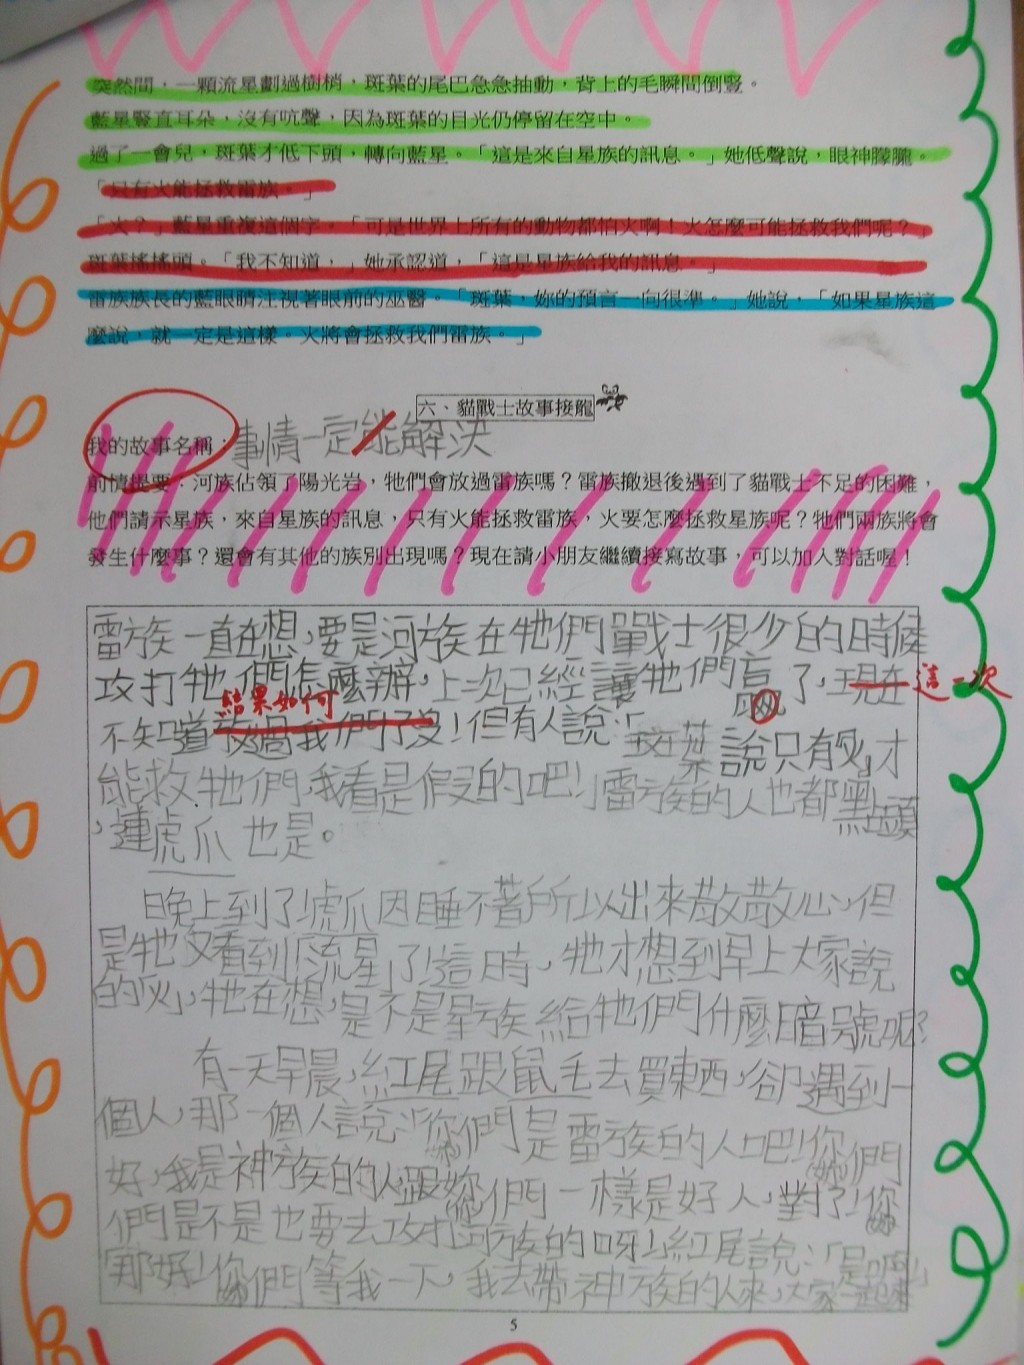 突然間，一顆流星劃過樹梢，斑葉的尾巴急急抽動，背上的毛瞬間倒豎。
藍星豎直耳朵，沒有吭聲，因為斑葉的目光仍停留在空中。
過了一會兒，斑葉才低下頭，轉向藍星。「這是來自星族的訊息。」她低聲說，眼神朦朧。
「只有火能拯救雷族。」
「火？」藍星重複這個字。「可是世界上所有的動物都怕火啊！火怎麼可能拯救我們呢？」
斑葉搖搖頭。「我不知道，」她承認道，「這是星族給我的訊息。」
雷族族長的藍眼睛注視著眼前的巫醫。「斑葉，妳的預言一向很準。」她說，「如果星族這
麼說，就一定是這樣。火將會拯救我們雷族。」
六、貓戰士故事接龍
我的故事名稱：事情一定能解決
前情提要：河族佔領了陽光岩，牠們會放過雷族嗎？雷族撤退後遇到了貓戰士不足的困難，
他們請示星族，來自星族的訊息，只有火能拯救雷族，火要怎麼拯救星族呢？牠們兩族將會
發生什麼事？還會有其他的族別出現嗎？現在請小朋友繼續接寫故事，可以加入對話喔！
雷族一直在想，要是河族在牠們戰士很少的時候
攻打牠們怎麼辦，上次已經讓牠們 了，現在這一次
結果如何
不知道放過我們了沒！但有人說：「斑葉說只有火，才
能救牠們，我看是假的吧！」雷族的人也都點頭
，連虎爪也是。
晚上到了，虎爪因睡不著所以出來散散心，但
是牠又看到「流星」了！這時，牠才想到早上大家說
的「火」，牠在想，是不是星族給牠們什麼暗號呢？
有一天早晨，紅尾跟鼠毛去買東西，卻遇到一
個人，那一個人說：「你們是雷族的人吧！你們
好，我是神族的人跟你們一樣是好人，對了！你
們是不是也要去攻打河族的呀！」紅尾說：「是啊」
「那好！你們等我一下，我去帶神族的人來，大家一起來
5